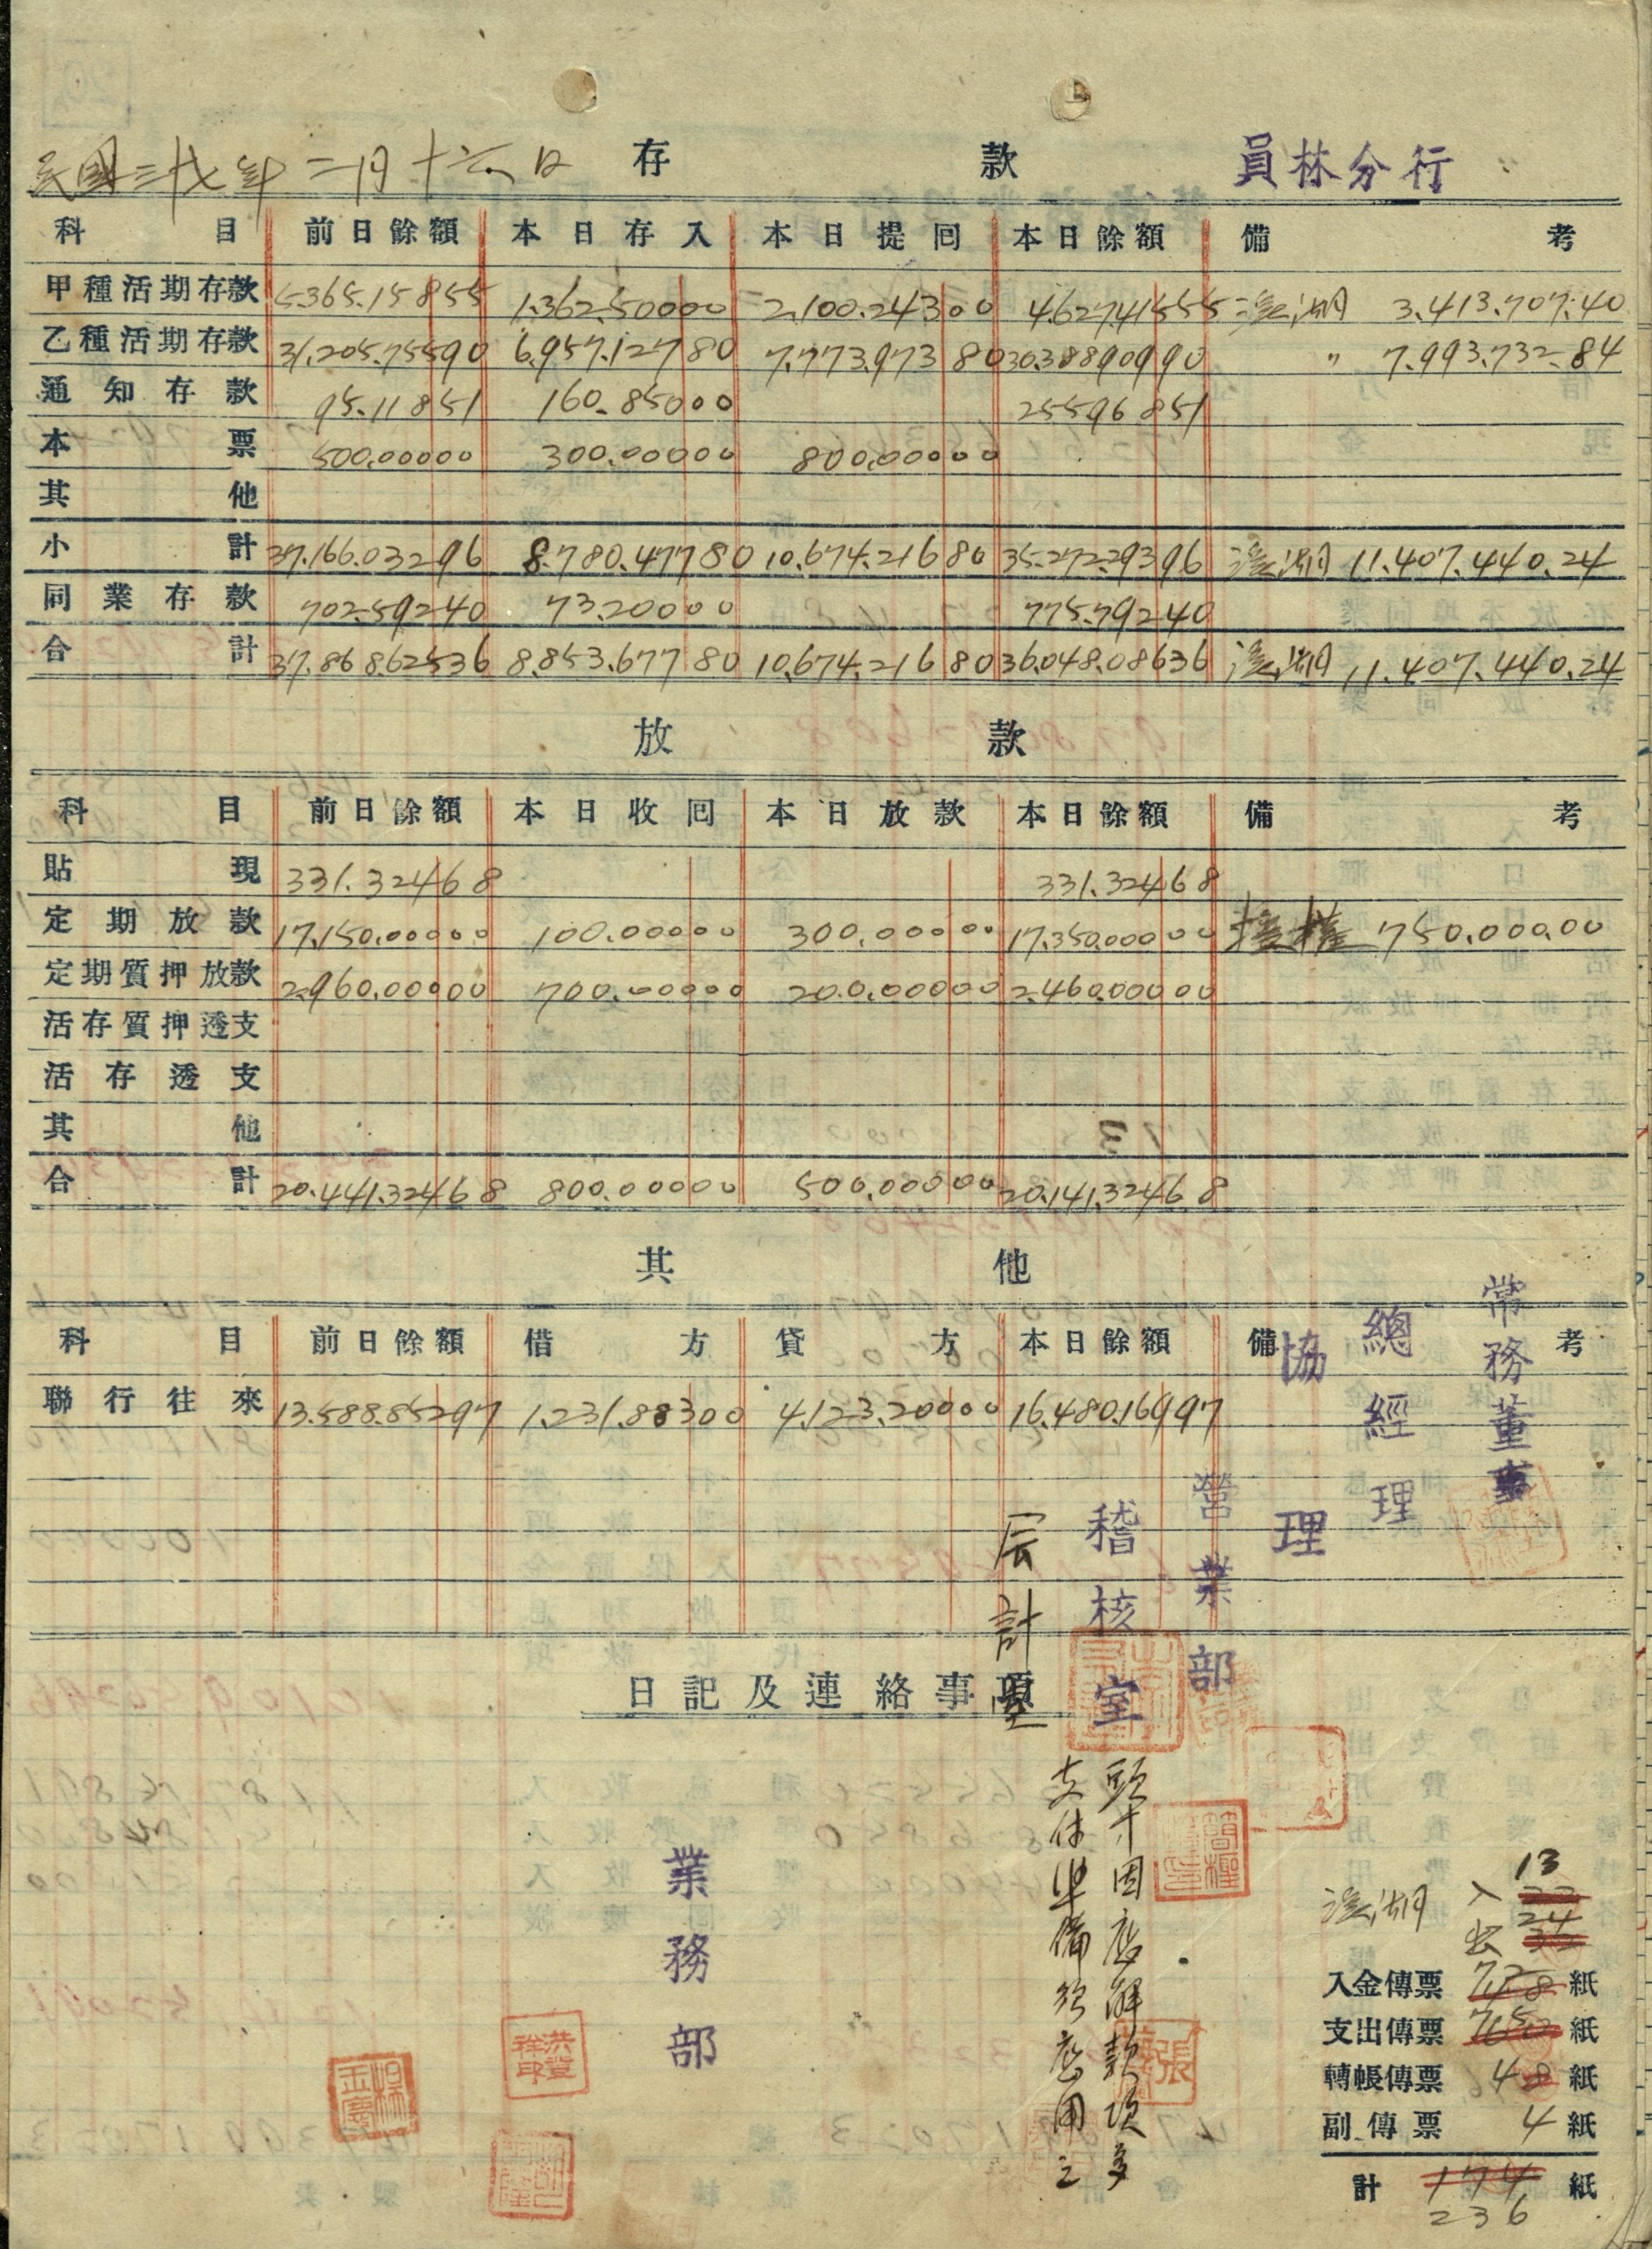 民國三十七年 二月十六日 存款 員林分行
科目 前日餘額 本日存入 本日提回 本日餘額 備考
甲種活期存款 5.365.158 55 1.362.500 00 2.100.243 00 4.627.415 55 溪湖 3.413.707.40
乙種活期存款 31.205.755 90 6.957.127 80 7.773.973 80 30.388.909 90 〃 7.993.732.84
通知存款 95.118 51 160.850 00 255.968 51
本票 500.000 00 300.000 00 800.000 00
其他
小計 37.166.032 96 8.780.477 80 10.674.216 80 35.272.293 96 溪湖 11.407.440.24
同業存款 702.592 40 73.200 00 775.792 40
合計 37.868.625 36 8.853.677 80 10.674.216 80 36.048.086 36 溪湖 11.407.440.24
放款
科目 前日餘額 本日收回 本日放款 本日餘額 備考
貼現 331.324 68 331.324 68
定期放款 17.150.000 00 100.000 00 300.000 00 17.350.000 00 750.000.00
定期質押放款 2.960.000 00 700.000 00 200.000 00 2.460.000 00
活存質押透支
活存透支
其他
合計 20.441.324 68 800.000 00 500.000 00 20.141.324 68
其他
科目 前日餘額 借方 貸方 本日餘額 備考
聯行往來 13.588.852 97 1.231.883 00 4.123.200 00 16.480.169 97
常務董事
總經理
協理
營業部
稽核室
會計室
日記及連絡事項
頭寸因應解款項多
支付準備須應用之
業務部
洪登祥印
張
溪湖 入 13
出 24
入金傳票 72 紙
支出傳票 75 紙
轉帳傳票 48 紙
副傳票 4 紙
計 174 紙
236